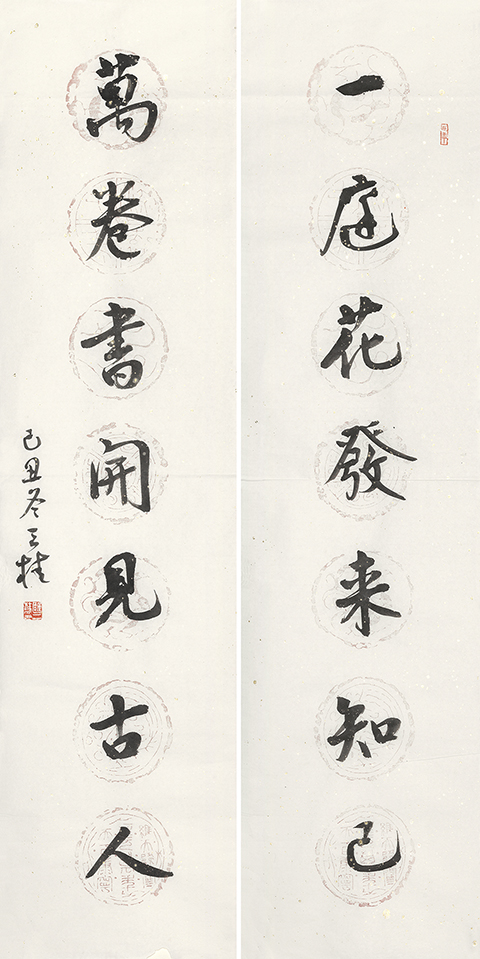 一庭花發来知己
萬卷書開見古人
己丑冬王桂